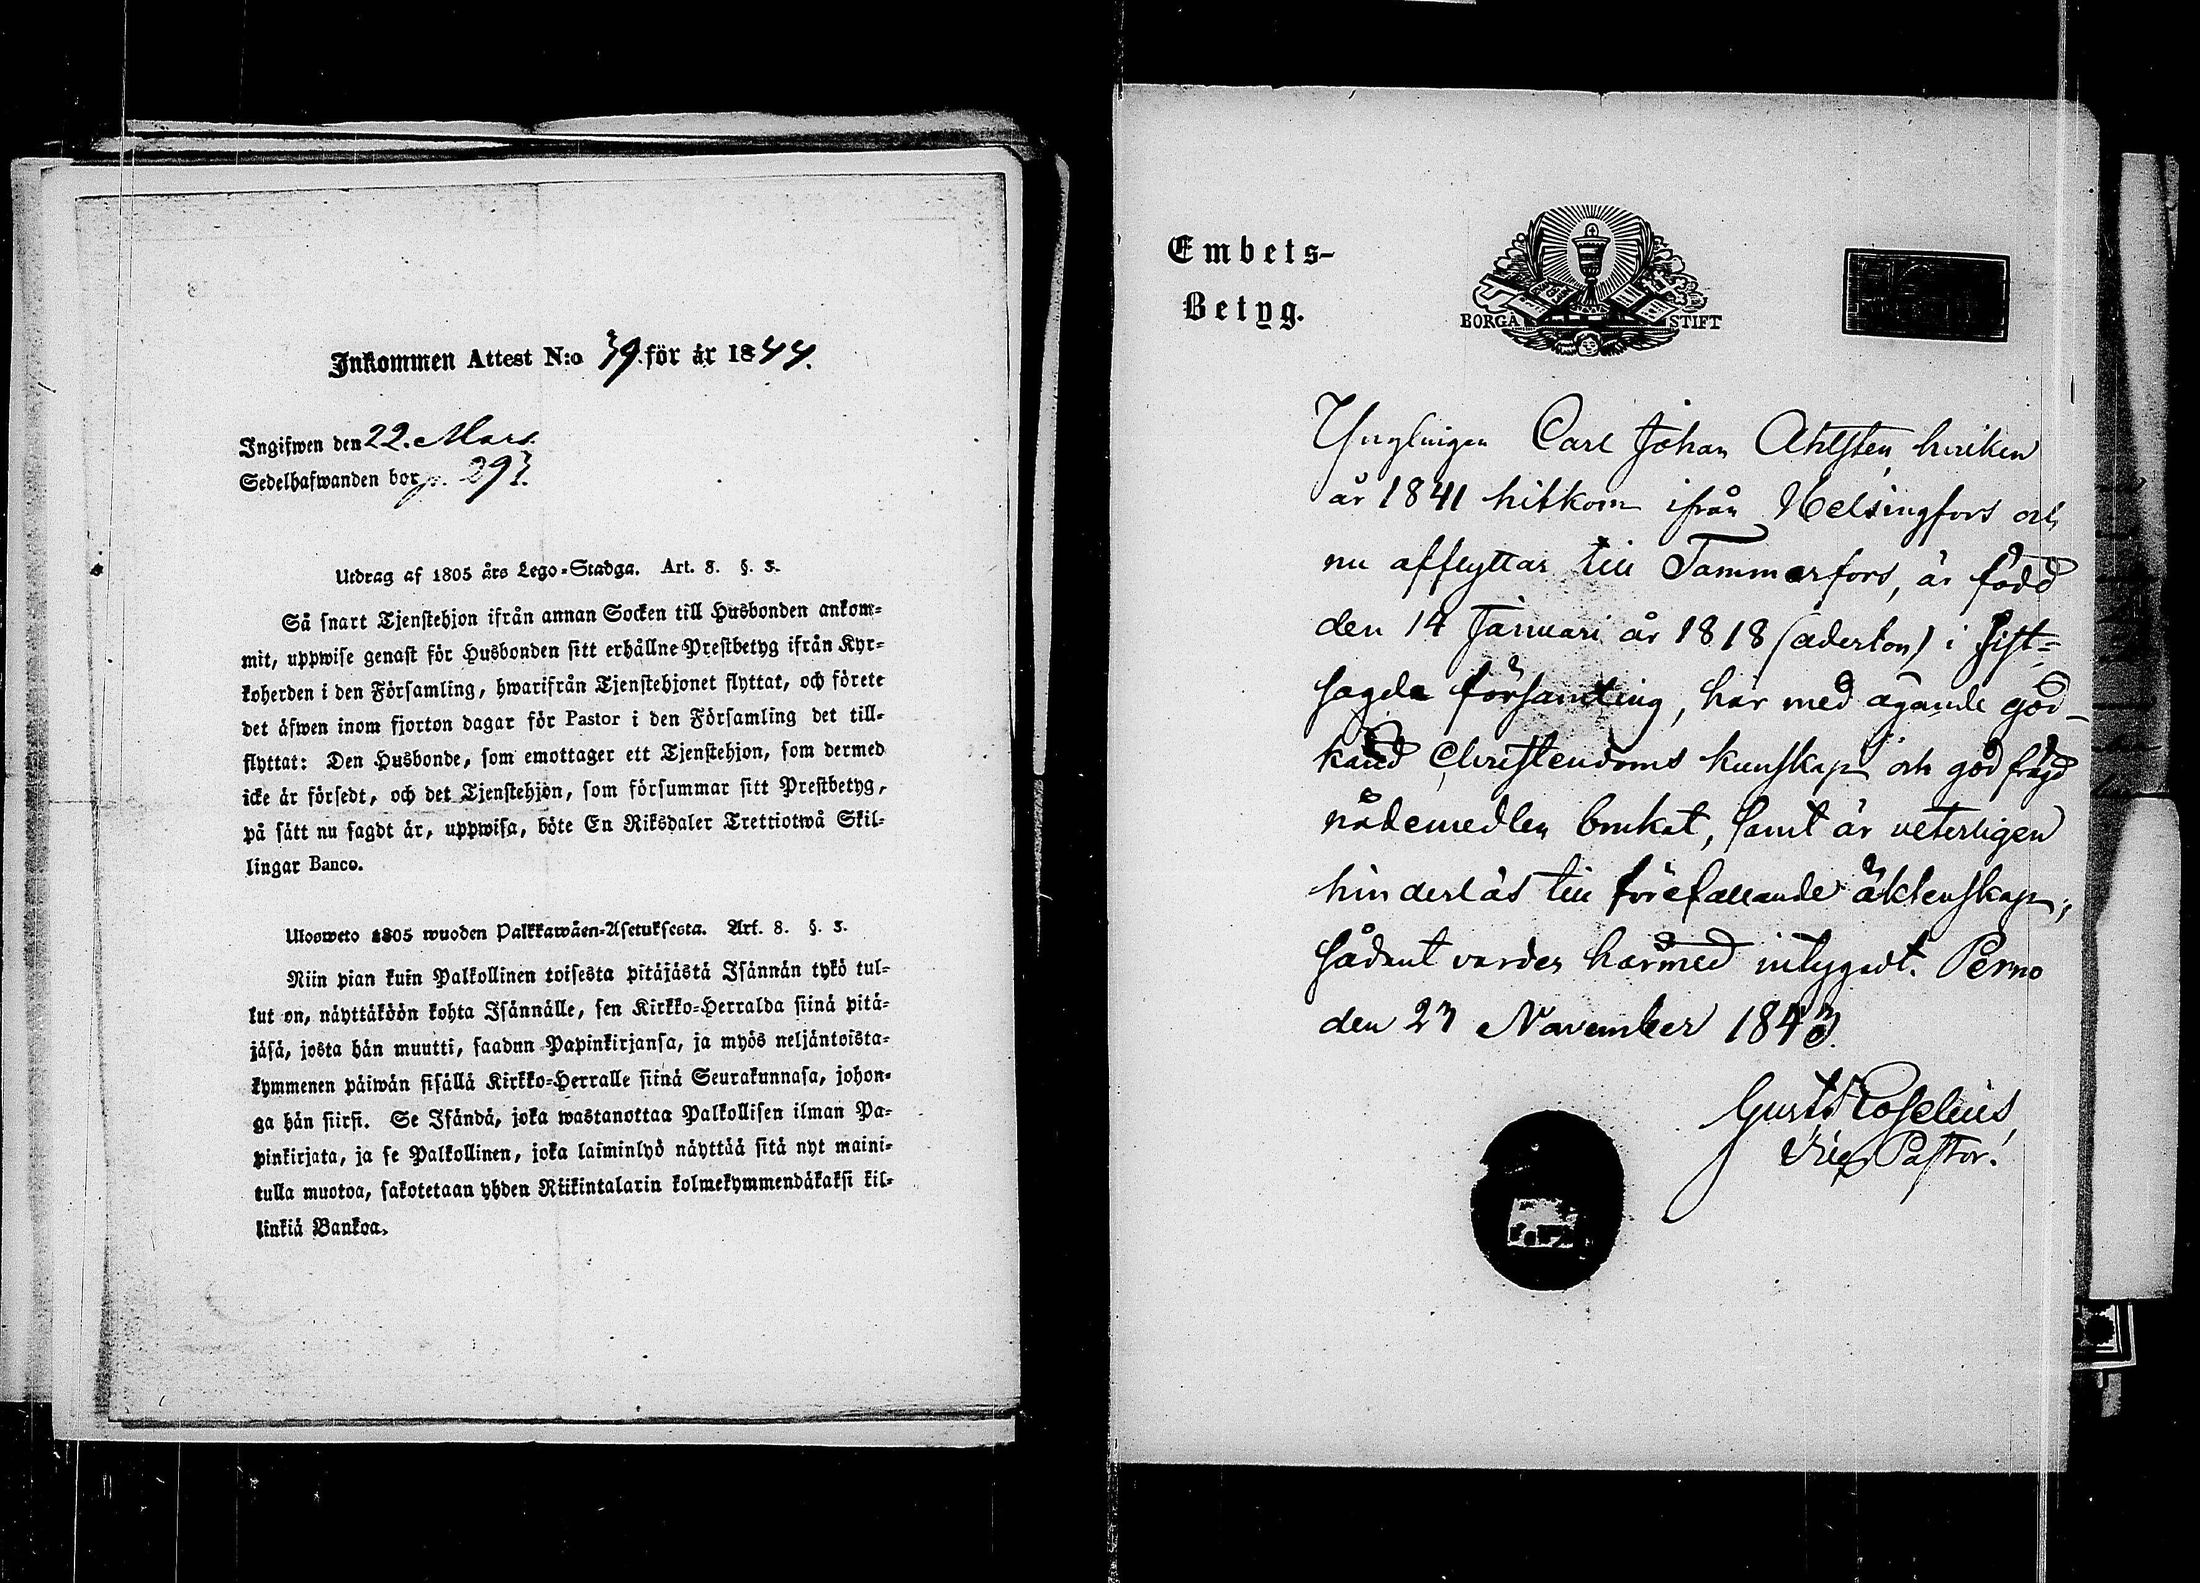 Inkommen Attest N:o 39. för år 1844.
Ingifwen den 22. Mars.
Sedelhafwanden bor p. 293.
Utdrag af 1805 års Lego-Stadga. Art. 8. §. 3.
Så snart Tjenstehjon ifrån annan Socken till Husbonden ankom-
mit, uppwise genast för Husbonden sitt erhållne Prestbetyg ifrån Kyr-
koherden i den Församling, hwarifrån Tjenstehjonet flyttat, och förete
det äfwen inom fjorton dagar för Pastor i den Församling det till-
flyttat: Den Husbonde, som emottager ett Tjenstehjon, som dermed
icke är försedt, och det Tjenstehjon, som försummar sitt Prestbetyg,
på sätt nu sagdt är, uppwisa, böte En Riksdaler Trettiotwå Skil-
lingar Banco.
Ulosweto 1805 wuoden Palkkawäen-Asetuksesta. Art. 8. §. 3.
Niin pian kuin Palkollinen toisesta pitäjästä Isännän tykö tul-
lut on, näyttäköön kohta Isännälle, sen Kirkko-Herralda siinä pitä-
jäsä, josta hän muutti, saadun Papinkirjansa, ja myös neljäntoista-
kymmenen päiwän sisällä Kirkko-Herralle siinä Seurakunnasa, johon-
ga hän siirsi. Se Isändä, joka wastanottaa Palkollisen ilman Pa-
pinkirjata, ja se Palkollinen, joka laiminlyö näyttää sitä nyt maini-
tulla muotoa, sakotetaan yhden Riikintalarin kolmekymmendäkaksi kil-
linkiä Bankoa.
Embets-
Betyg.
BORGÅ STIFT
Ynglingen Carl Johan Ahlsten, hvilken
år 1841 hitkom ifrån Helsingfors och
nu afflyttar till Tammerfors, är född
den 14 Januari år 1818 (aderton) i sist-
sagde församling, har med ägande god-
känd Christendoms kunskap och god frägd
nådemedlen brukat, samt är veterligen
hinderlös till förefallande äktenskap;
sådant varder härmed intygadt. Perno
den 23 November 1843.
Gust. Roselius,
Vice Pastor.